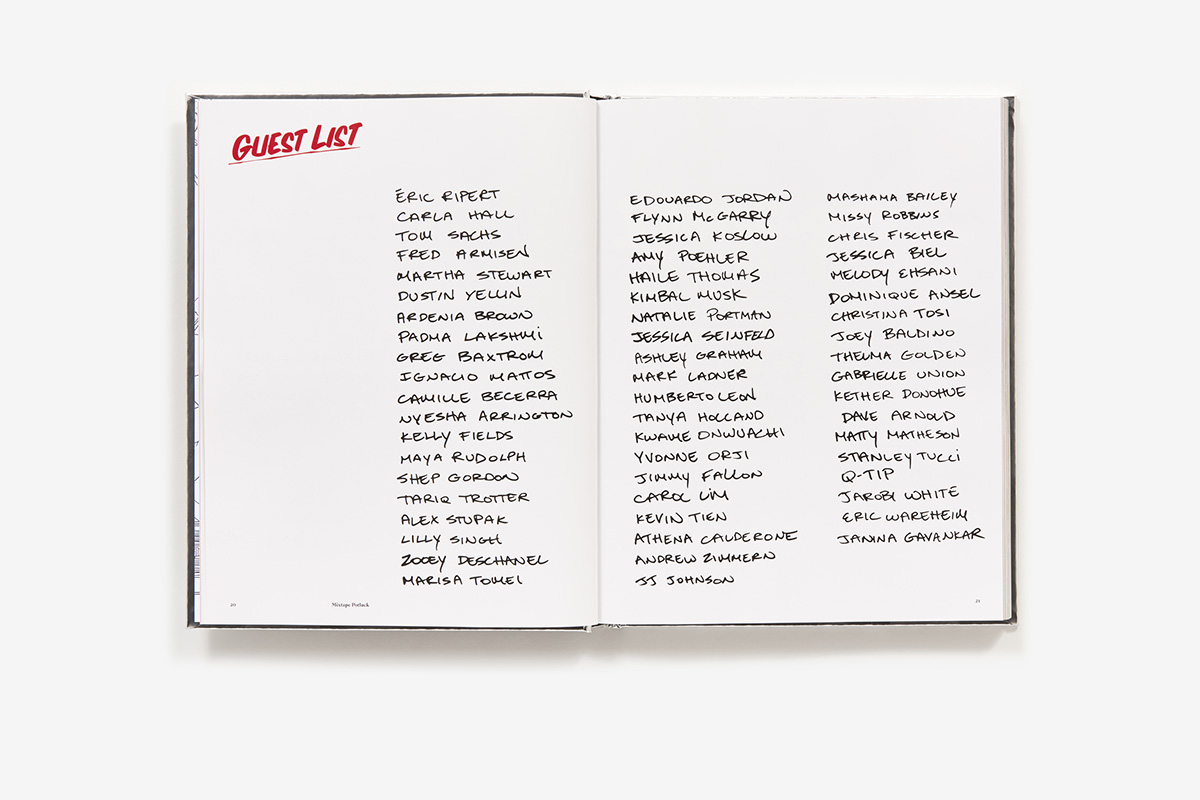 GUEST LIST
ÉRIC RIPERT
CARLA HALL
TOM SACHS
FRED ARMISEN
MARTHA STEWART
DUSTIN YELLIN
ARDENIA BROWN
PADMA LAKSHMI
GREG BAXTROM
IGNACIO MATTOS
CAMILLE BECERRA
NYESHA ARRINGTON
KELLY FIELDS
MAYA RUDOLPH
SHEP GORDON
TARIQ TROTTER
ALEX STUPAK
LILLY SINGH
ZOOEY DESCHANEL
MARISA TOMEI
20 Mixtape Potluck
EDOUARDO JORDAN
FLYNN McGARRY
JESSICA KOSLOW
AMY POEHLER
HAILE THOMAS
KIMBAL MUSK
NATALIE PORTMAN
JESSICA SEINFELD
ASHLEY GRAHAM
MARK LADNER
HUMBERTO LEON
TANYA HOLLAND
KWAME ONWUACHI
YVONNE ORJI
JIMMY FALLON
CAROL LIM
KEVIN TIEN
ATHENA CALDERONE
ANDREW ZIMMERN
JJ JOHNSON
MASHAMA BAILEY
MISSY ROBBINS
CHRIS FISCHER
JESSICA BIEL
MELODY EHSANI
DOMINIQUE ANSEL
CHRISTINA TOSI
JOEY BALDINO
THELMA GOLDEN
GABRIELLE UNION
KETHER DONOHUE
DAVE ARNOLD
MATTY MATHESON
STANLEY TUCCI
Q-TIP
JAROBI WHITE
ERIC WAREHEIM
JANINA GAVANKAR
21